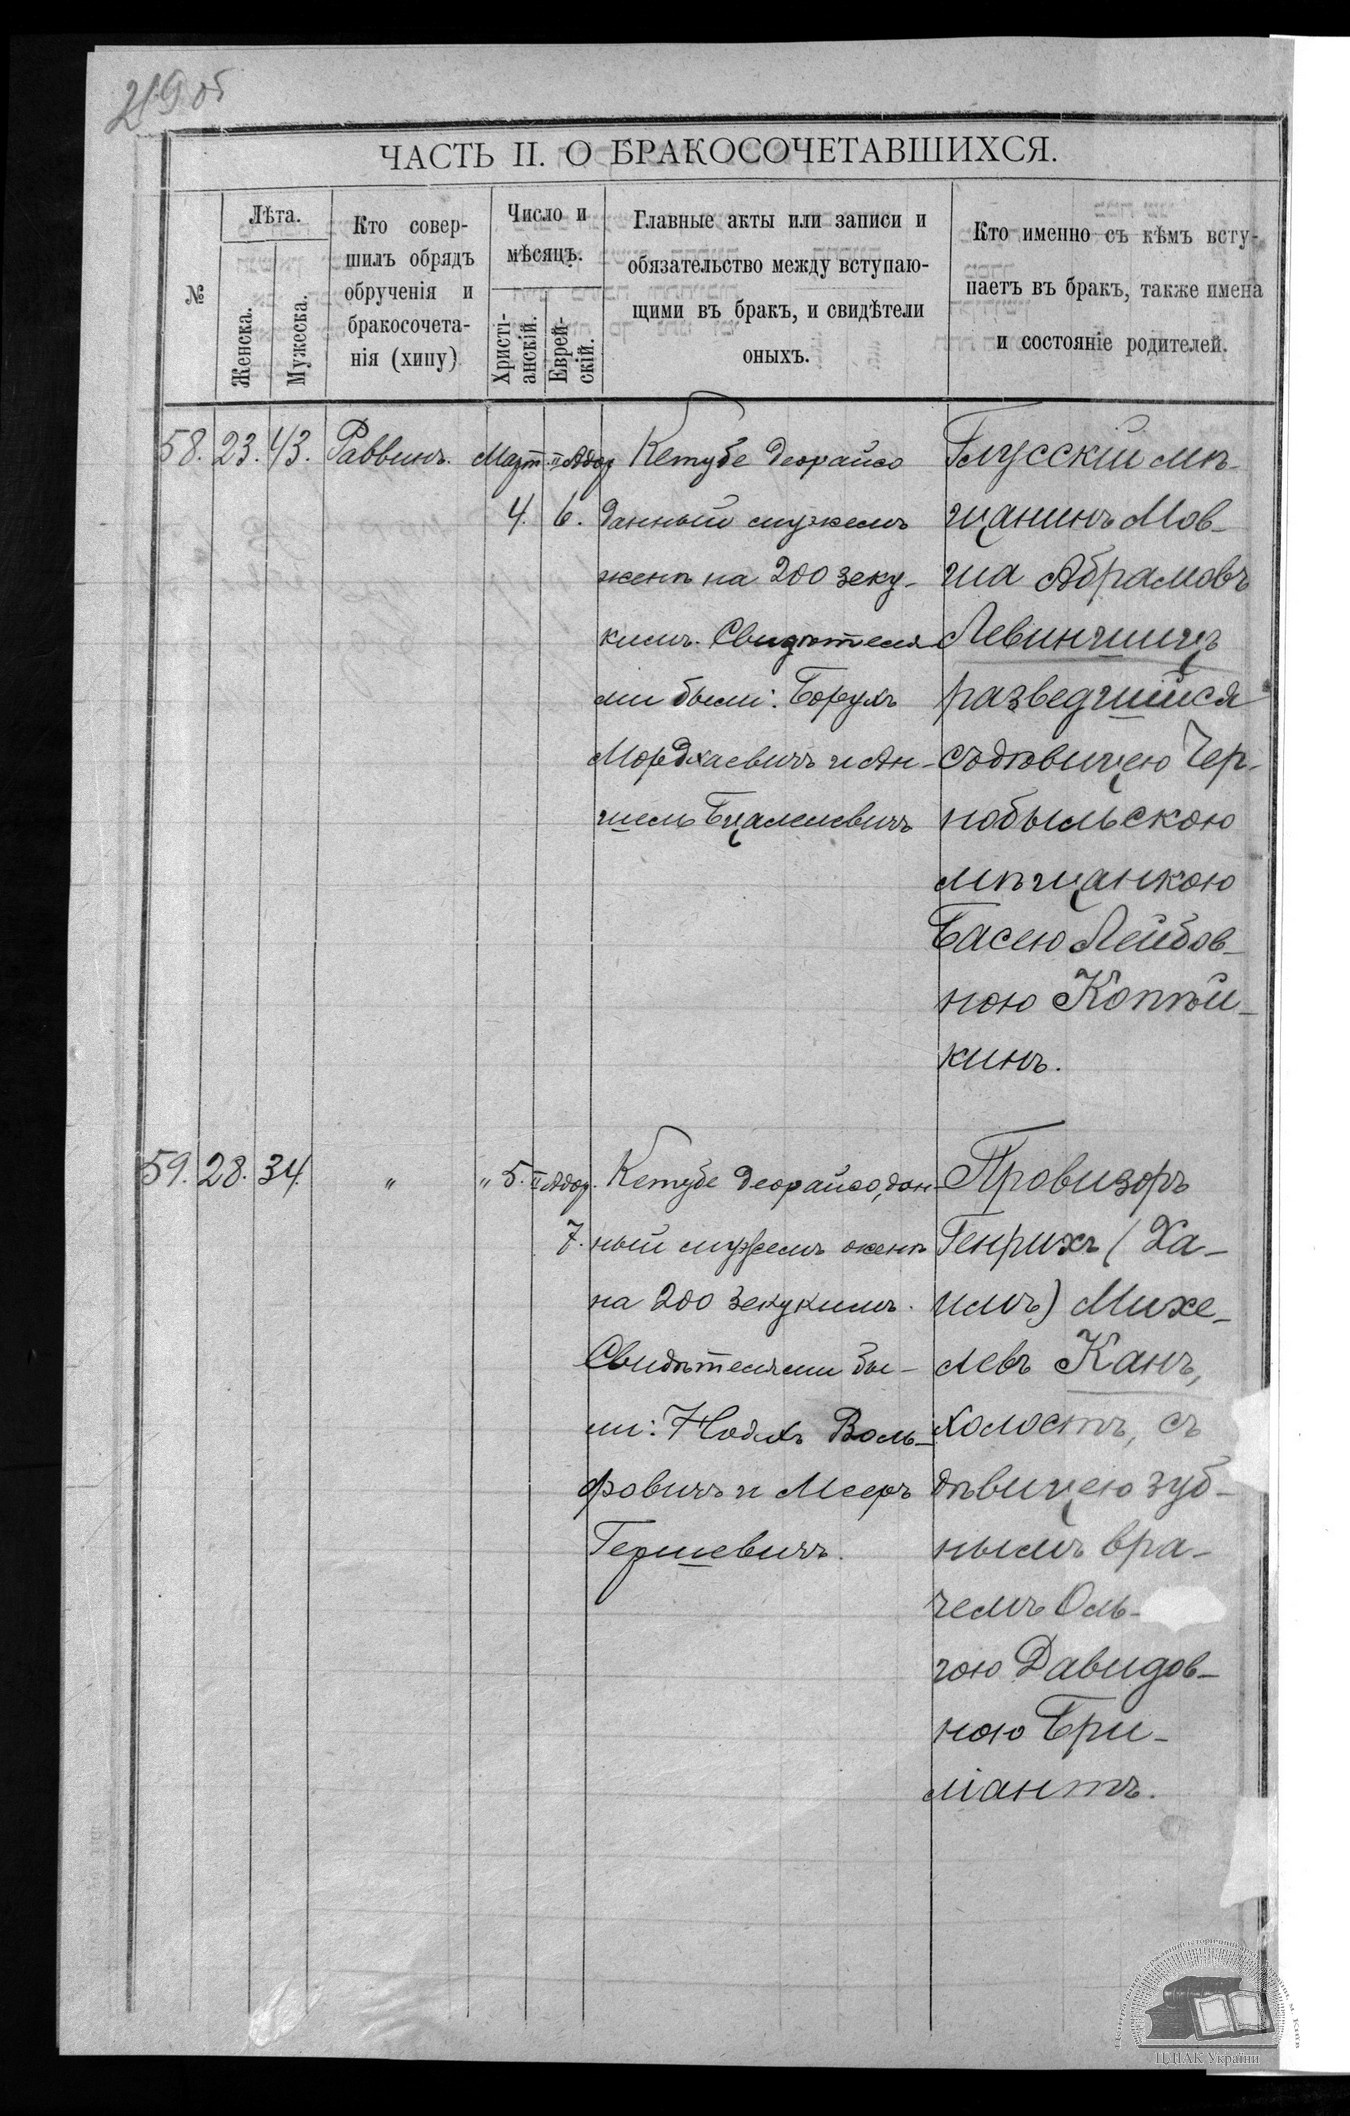 219об
ЧАСТЬ II. О БРАКОСОЧЕТАВШИХСЯ.
№
Лѣта.
Женска.
Мужеска.
Кто совер-
шилъ обрядъ
обрученія и
бракосочета-
нія (хипу)
Число и
мѣсяцъ.
Христі-
анскій.
Еврей-
скій.
Главные акты или записи и
обязательство между вступаю-
щими въ бракъ, и свидѣтели
оныхъ.
Кто именно съ кѣмъ всту-
паетъ въ бракъ, также имена
и состояніе родителей.
58. 23. 43. Раввинъ. Март. II Адор
4. 6.
Кетубе деорайсо
данный мужемъ
женѣ на 200 зеку-
кимъ. Свидѣтеля-
ми были: Борухъ
Мордхаевичъ и Ан-
шель Бцалелевичъ
Глусскій мѣ-
щанинъ Мов-
ша Абрамовъ
Левинчицъ
разведшійся
съ дѣвицею Чер-
нобыльскою
мѣщанкою
Басею Лейбов-
ною Копѣй-
кинъ.
59. 28. 34. " " 5. II Адор.
7.
Кетубе деорайсо, дан-
ный мужемъ женѣ
на 200 зекукимъ.
Свидѣтелями бы-
ли: Нодхъ Воль-
фовичъ и Меер
Гершевичъ.
Провизоръ
Генрихъ (Ха-
имъ) Михе-
левъ Канъ,
холостъ, съ
дѣвицею зуб-
нымъ вра-
чемъ Оль-
гою Давидов-
ною Бри-
ліантъ.
ЦДІАК України